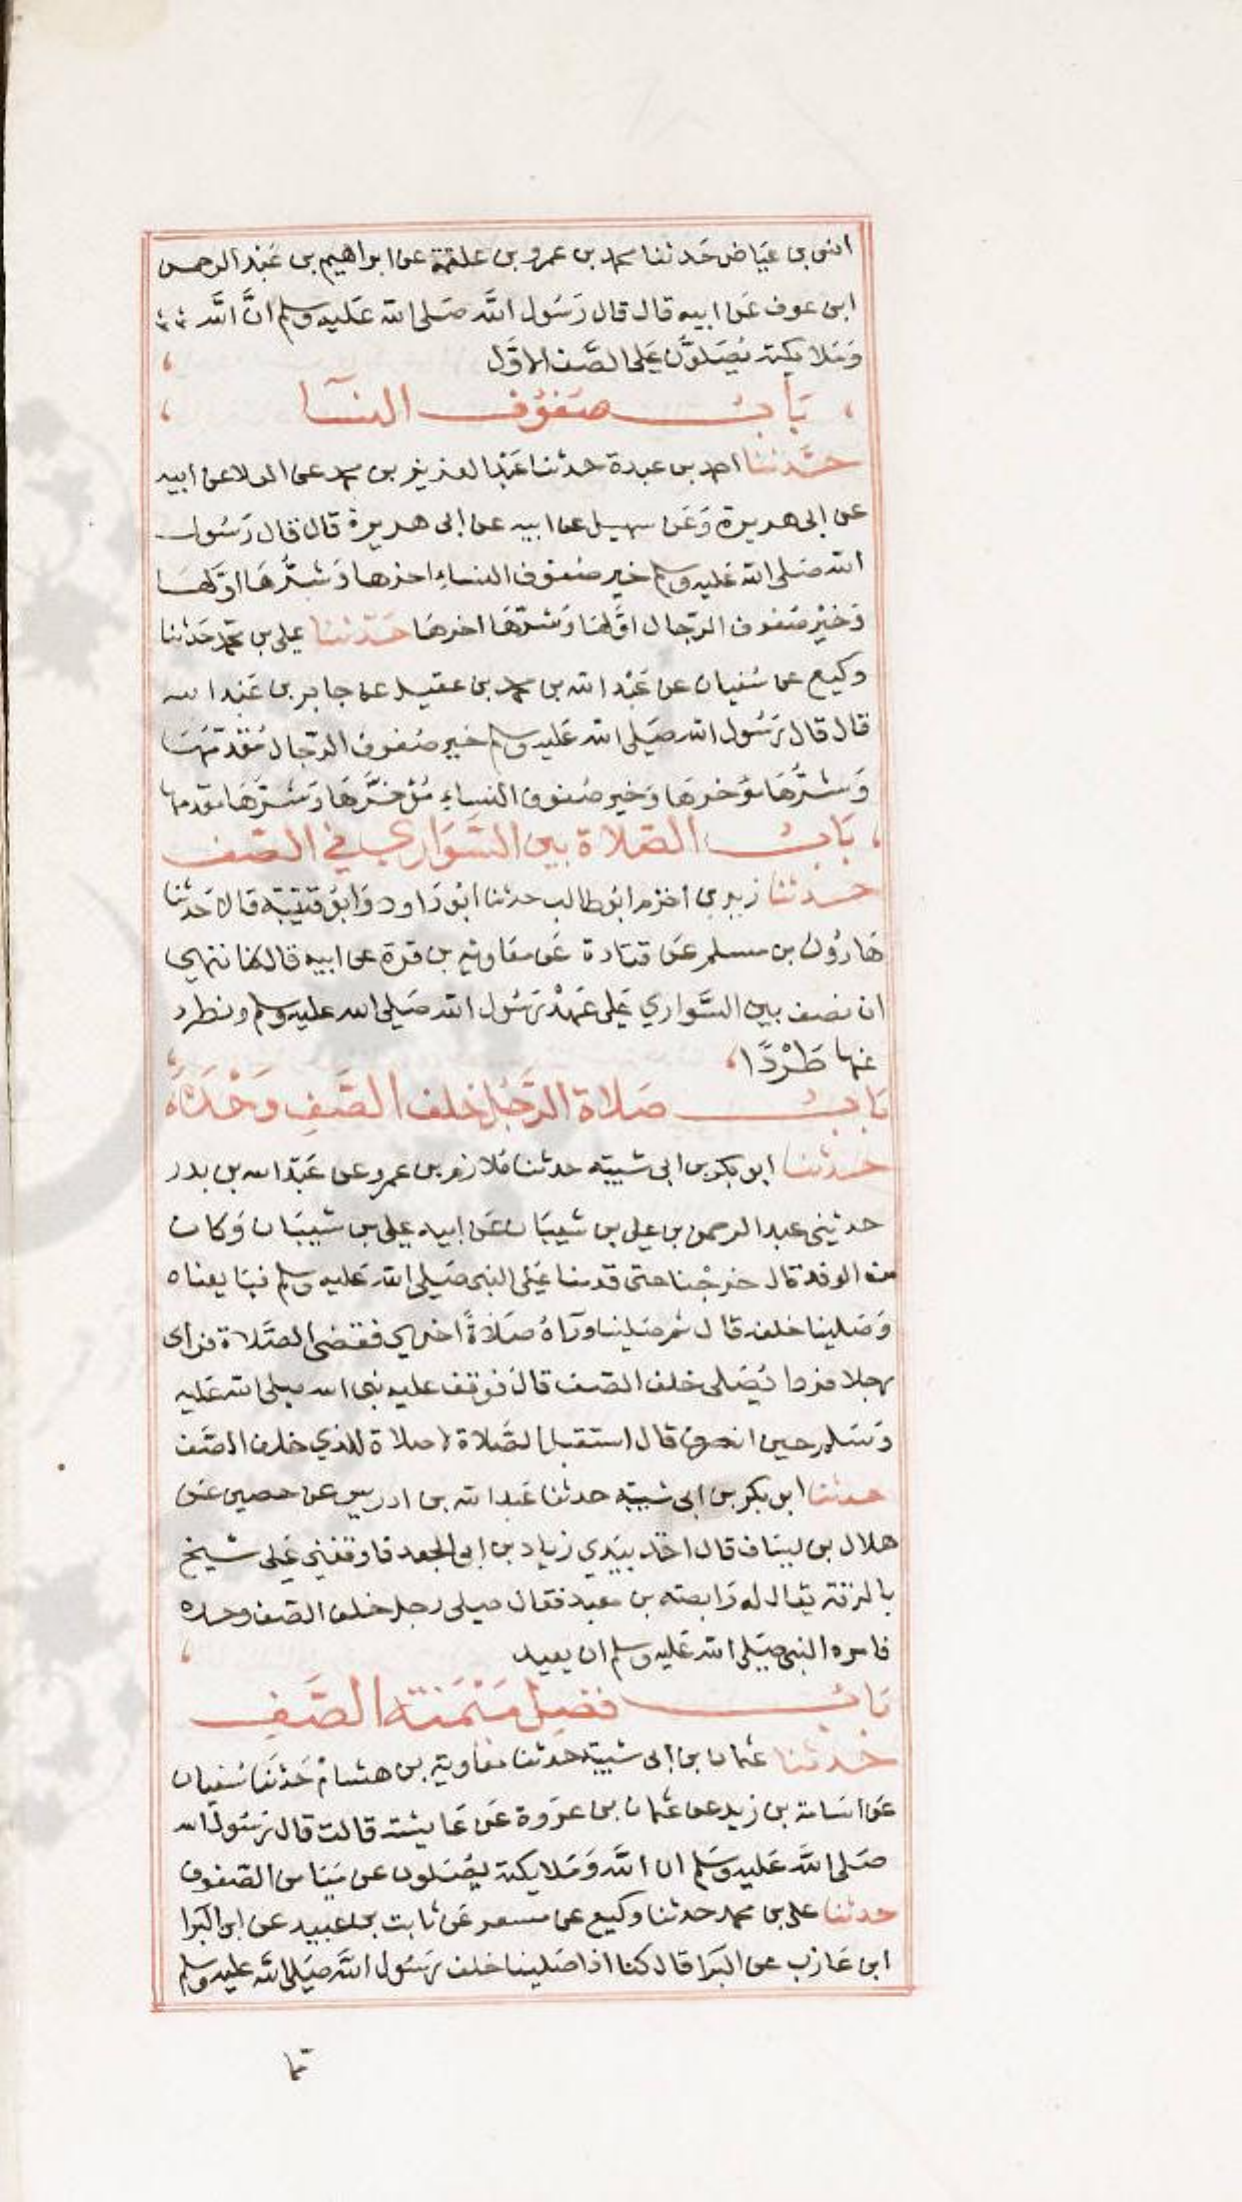 انس بن عياض حَدثنا محمد بن عمرو بن علقمة عن ابراهيم بن عَبْد الرحمن
ابن عوف عَن ابيه قال قال رَسُول اللَّه صَلى الله عَليه وسلم انَّ اللَّه
وَملايكته يُصَلوُّن عَلى الصَّف الاوَّل
بَابُ صفوُف النسآ
حَدَّثنا احمد بن عبدة حدثنا عَبْد العزيز بن محمد عن العلا عن ابيه
عن ابى هريرة وَعَن سهيل عن ابيه عن ابى هريرة قال قال رَسُول
الله صَلى الله عَليه وسلم خير صُفوف النساءِ اخرها وَشَرُّهَا اوّلهَا
وَخيْر صَفوف الرّجال اوَّلهَا وَشرّهَا اخرهَا حَدّثنا علي بن محمّد حَدثنا
وكيع عن سُفيان عن عَبْد الله بن محمد بن عقيل عن جابر بن عَبْد الله
قال قال رَسُول الله صَلى الله عَليه وسلم خير صُفوف الرّجال مُقدّمهَا
وَشرُّهَا مؤخرهَا وَخير صُفوف النساءِ مُؤخرَّهَا وَشرّهَا مقدمها
بَابُ الصّلاة بين السَّوَاري في الصّف
حَدثنا زيد بن اخزم ابوُ طالب حدثنا ابوُ دَاود وَابوُ قتيبَة قالا حَدثنا
هَارُون بن مسلم عَن قتادة عَن معَاوية بن قرة عن ابيه قال كنا ننهي
ان نصف بين السَّواري عَلى عَهْد رَسُول الله صَلى الله عليه وسلم ونطرد
عَنها طَرْدًا
بَابُ صَلاة الرَّجُل خلف الصَّفِ وَحْدَهُ
حَدثنا ابو بكر بن ابى شيبة حدثنا مُلازم بن عمرو عن عَبْد الله بن بدر
حدثني عبد الرحمن بن علي بن شيبَان عَن ابيه علي بن شيبَان وَكان
من الوفد قال خرجْنا حتى قدمنا عَلى النبى صَلى الله عَليه وسلم فبَايعناه
وَصَلينا خلفه قال ثم صَلينا ورَآهُ صَلاةً اخري فقضى الصَّلاة فراى
رجلا فردا يُصَلى خلف الصّف قال فوَقف عليه نبى الله صلى الله عَليه
وَسَلم حين انصرف قال استقبل الصَّلاة لا صلاة للذي خلف الصّف
حدثنا ابو بكر بن ابى شيبَة حدثنا عَبد الله بن ادريس عن حصين عَن
هلال بن يسَاف قال اخذ بيَدي زياد بن ابى الجعد فاوقفني عَلى شيخ
بالرقة يقال له وَابصة بن معبد فقال صلى رجل خلف الصّف وحده
فامره النبى صَلى الله عَليه وسلم ان يعيد
بَابُ فضل مَيْمَنة الصَّفِ
حَدثنا عثمان بن ابى شيبَة حَدثنا معَاوية بن هشامْ حَدثنا سُفيان
عَن اسَامة بن زيد عن عثمان بن عروة عَن عَايشة قالت قال رَسُول الله
صَلى اللَّه عَليه وسَلم ان اللَّه وَمَلايكته يُصَلون عن ميَامن الصّفوف
حدثنا علي بن محمد حدثنا وكيع عن مسعر عَن ثابت بن عبيد عن ابن البَرا
ابن عَازب عن البَرَا قال كنا اذا صَلينا خلف رَسُول اللَّه صَلى الله عليه وسلم